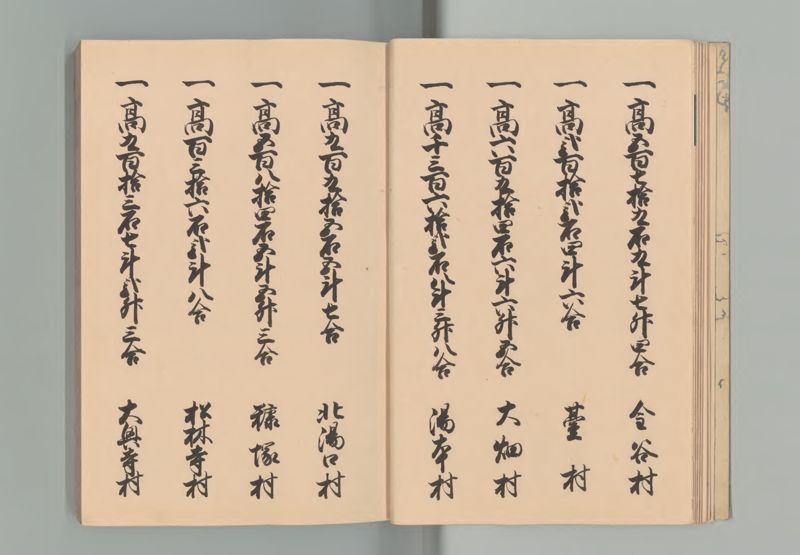 一高五百七拾九石九斗七升四合 金谷村
一高弐百拾弐石四斗六合 臺村
一高六百九拾四石六斗六升五合 大畑村
一高千三百六拾弐石八斗三升八合 湯本村
一高九百九拾五石五斗七合 北湯口村
一高五百八拾四石五斗五升三合 糠塚村
一高百三拾六石弐斗八合 松林寺村
一高九百拾三石七斗弐升三合 大興寺村